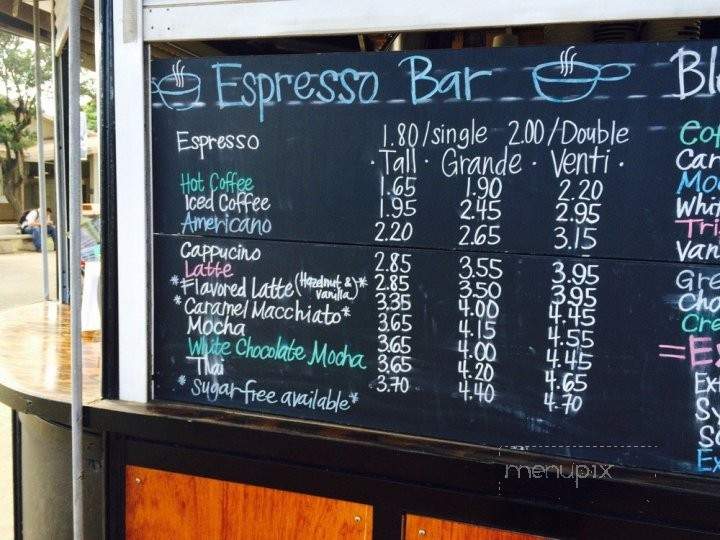 Espresso Bar
Espresso 1.80/single 2.00/Double
· Tall · Grande · Venti ·
Hot Coffee 1.65 1.90 2.20
Iced Coffee 1.95 2.45 2.95
Americano 2.20 2.65 3.15
Cappucino 2.85 3.55 3.95
Latte 2.85 3.50 3.95
*Flavored Latte (Hazelnut & vanilla)* 3.35 4.00 4.45
*Caramel Macchiato* 3.65 4.15 4.55
Mocha 3.65 4.00 4.45
White Chocolate Mocha 3.65 4.20 4.65
Thai 3.70 4.40 4.70
*Sugarfree available*
Bl
Car
Mo
Whit
Van
Gre
Cho
Cre
menupix